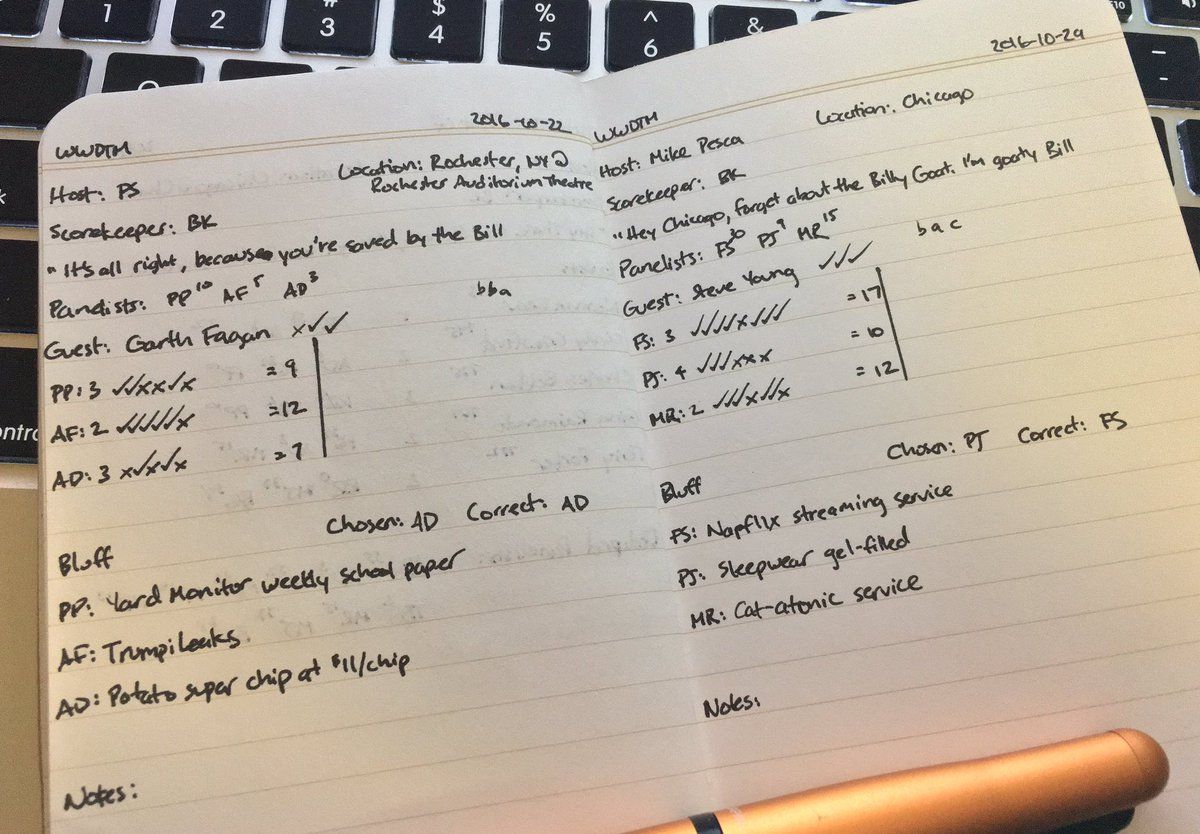 1 2 # 3 $ 4 % 5 ^ 6 &
WWDTM 2016-10-22
Host: PS Location: Rochester, NY
Rochester Auditorium Theatre
Scorekeeper: BK
"It's all right, because you're saved by the Bill
Panelists: PP10 AF5 AD3 bba
Guest: Garth Fagan x✓✓
PP: 3 ✓✓xx✓x = 9
AF: 2 ✓✓✓✓✓x =12
AD: 3 x✓x✓x = 7
Chosen: AD Correct: AD
Bluff
PP: Yard Monitor weekly school paper
AF: Trumpileaks
AD: Potato super chip at $11/chip
Notes:
2016-10-29
WWDTM Location: Chicago
Host: Mike Pesca
Scorekeeper: BK
"Hey Chicago, forget about the Billy Goat. I'm goaty Bill
Panelists: FS10 PJ9 MR15 bac
Guest: Steve Young ✓✓✓
FS: 3 ✓✓✓✓x✓✓✓ = 17
PJ: 4 ✓✓✓xxx = 10
MR: 2 ✓✓✓x✓✓x = 12
Chosen: PJ Correct: FS
Bluff
FS: Napflix streaming service
PJ: Sleepwear gel-filled
MR: Cat-atonic service
Notes: